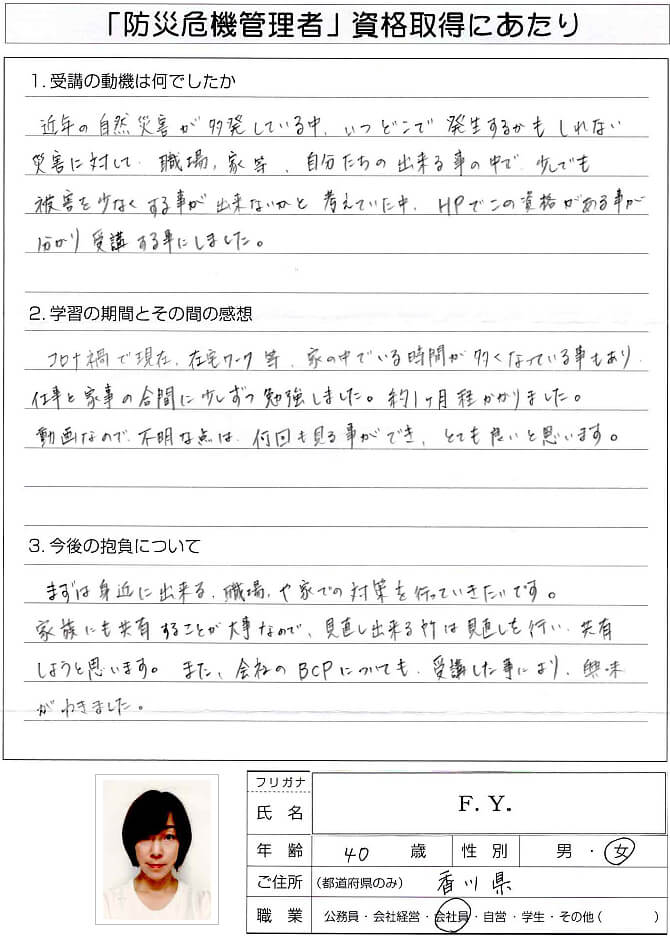 「防災危機管理者」資格取得にあたり
1. 受講の動機は何でしたか
近年の自然災害が多発している中、いつどこで発生するかもしれない
災害に対して、職場、家等、自分たちの出来る事の中で、少しでも
被害を少なくする事が出来ないかと考えていた中、HPでこの資格がある事が
分かり受講する事にしました。
2. 学習の期間とその間の感想
コロナ禍で現在、在宅ワーク等、家の中でいる時間が多くなっている事もあり、
仕事と家事の合間に少しずつ勉強しました。約1ヶ月程かかりました。
動画なので、不明な点は、何回も見る事ができ、とても良いと思います。
3. 今後の抱負について
まずは身近に出来る、職場、や家での対策を行っていきたいです。
家族にも共有することが大事なので、見直し出来る所は見直しを行い、共有
しようと思います。また、会社のBCPについても、受講した事により、興味
がわきました。
フリガナ
氏名 F. Y.
年齢 40 歳 性別 男・女
ご住所 (都道府県のみ) 香川県
職業 公務員・会社経営・会社員・自営・学生・その他( )